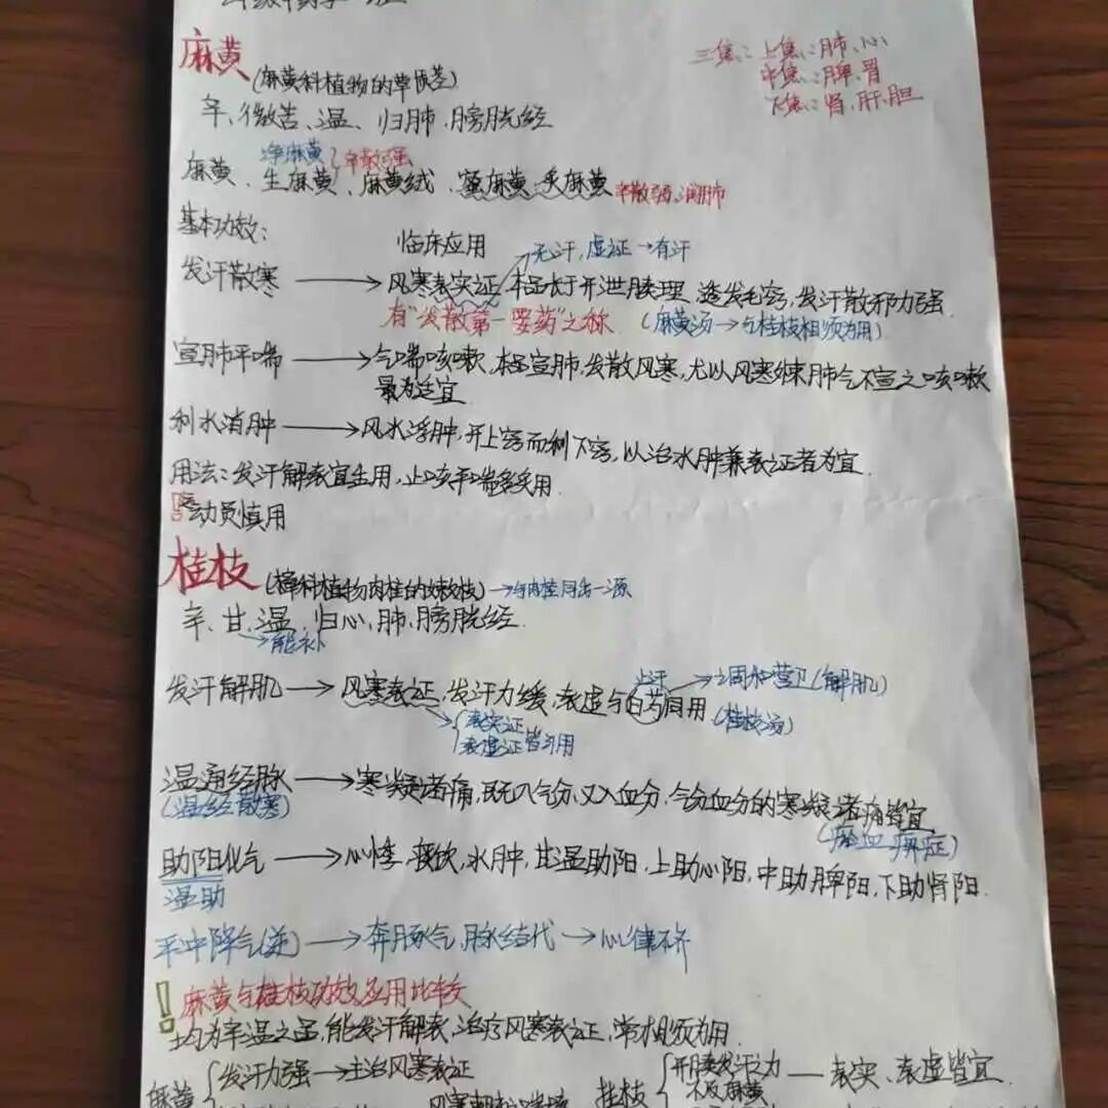 麻黄
(麻黄科植物的草质茎)
三焦:上焦:肺、心
中焦:脾、胃
下焦:肾、肝、胆
辛、微苦、温、归肺、膀胱经
净麻黄 辛散强
麻黄、生麻黄、麻黄绒、蜜麻黄、炙麻黄 辛散弱、润肺
基本功效: 临床应用
无汗,虚证→有汗
发汗散寒→风寒表实证,本品长于开泄腠理、透发毛窍,发汗散邪力强
有"发散第一要药"之称 (麻黄汤→与桂枝相须为用)
宣肺平喘→气喘咳嗽,本品宣肺,发散风寒,尤以风寒外束肺气不宣之咳嗽
最为适宜
利水消肿→风水浮肿,开上窍而利下窍,以治水肿兼表证者为宜
用法:发汗解表宜生用,止咳平喘多炙用
!运动员慎用
桂枝 (樟科植物肉桂的嫩枝)→与肉桂同出一源
辛、甘、温、归心,肺,膀胱经
→能补
止汗→调和营卫(解肌)
发汗解肌→风寒表证,发汗力缓,表虚与白芍同用(桂枝汤)
表实证
表虚证皆可用
温通经脉→寒凝诸痛,既入气分,又入血分,气分血分的寒凝诸痛皆宜
(温经散寒) (瘀血 痹症)
助阳化气→心悸,痰饮,水肿,甘温助阳,上助心阳,中助脾阳,下助肾阳
温助
平冲降气(逆)→奔豚气,脉结代→心律不齐
!麻黄与桂枝功效应用比较
均为辛温之品,能发汗解表,治疗风寒表证,常相须为用
麻黄 发汗力强→主治风寒表证 桂枝 开腠发汗之力 不及麻黄 — 表实、表虚皆宜